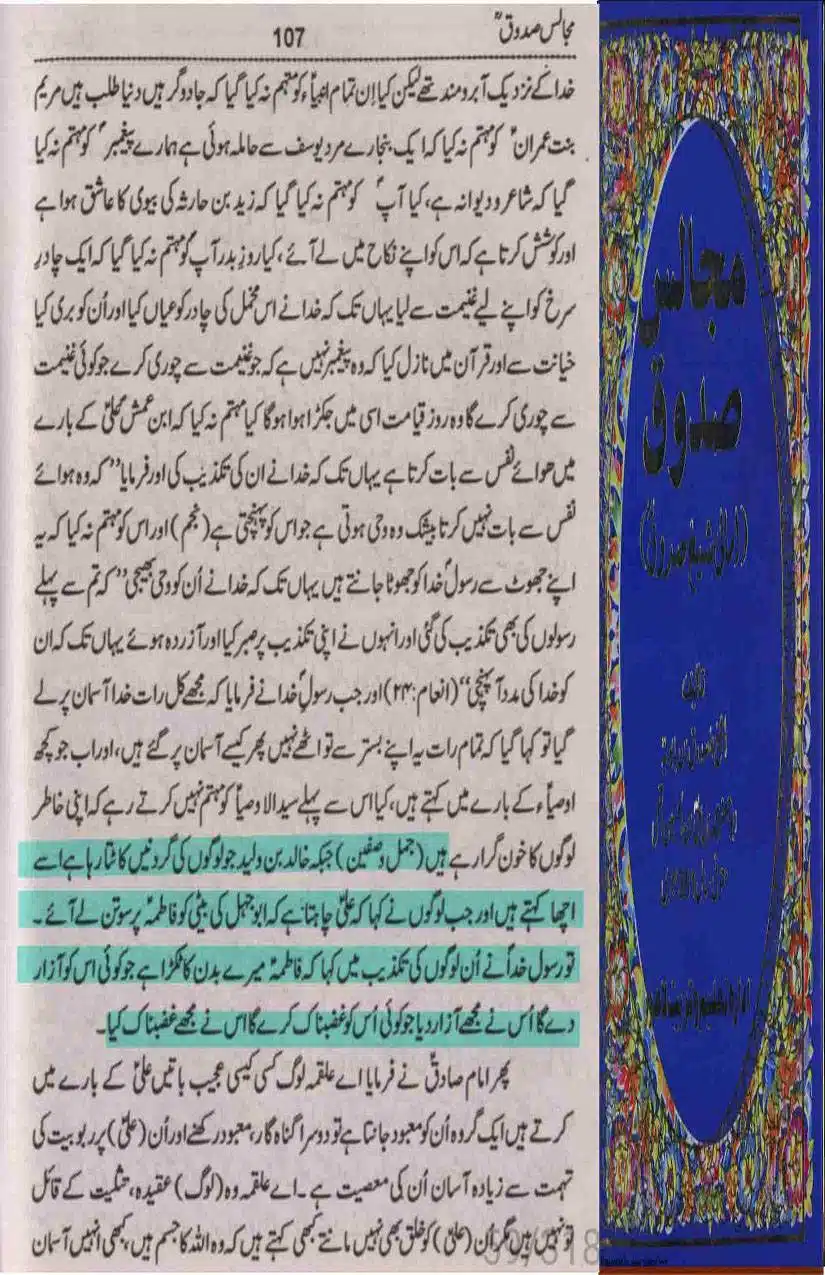 مجالس صدوقؒ
107
خدا کے نزدیک آبرو مند تھے لیکن کیا اِن تمام انبیاؑء کو متہم نہ کیا گیا کہ جادوگر ہیں دنیا طلب ہیں مریم
بنت عمرانؑ کو مہتم نہ کیا کہ ایک نجارے مرد یوسف سے حاملہ ہوئی ہے ہمارے پیغمبرؐ کو مہتم نہ کیا
گیا کہ شاعر و دیوانہ ہے، کیا آپؐ کو مہتم نہ کیا گیا کہ زید بن حارثہ کی بیوی کا عاشق ہوا ہے
اور کوشش کرتا ہے کہ اس کو اپنے نکاح میں لے آئے، کیا روزِ بدر آپؐ کو مہتم نہ کیا گیا کہ ایک چادرِ
سرخ کو اپنے لیے غنیمت سے لیا یہاں تک کہ خدا نے اس مخمل کی چادر کو عیاں کیا اور اُن کو بری کیا
خیانت سے اور قرآن میں نازل کیا کہ وہ پیغمبر نہیں ہے کہ جو غنیمت سے چوری کرے جو کوئی غنیمت
سے چوری کرے گا وہ روز قیامت اسی میں جکڑا ہوا ہوگا کیا مہتم نہ کیا کہ ابن عمش علیؑ کے بارے
میں ھوائے نفس سے بات کرتا ہے یہاں تک کہ خدا نے ان کی تکذیب کی اور فرمایا ”کہ وہ ہوائے
نفس سے بات نہیں کرتا بیشک وہ وحی ہوتی ہے جو اس کو پہنچتی ہے (نجم) اور اس کو مہتم نہ کیا کہ یہ
اپنے جھوٹ سے رسولؐ خدا کو جھوٹا جانتے ہیں یہاں تک کہ خدا نے اُن کو وحی بھیجی ”کہ تم سے پہلے
رسولوں کی بھی تکذیب کی گئی اور انہوں نے اپنی تکذیب پر صبر کیا اور آزردہ ہوئے یہاں تک کہ ان
کو خدا کی مدد آپہنچی“ (انعام:۲۴) اور جب رسولِؐ خدا نے فرمایا کہ مجھے کل رات خدا آسمان پر لے
گیا تو کہا گیا کہ تمام رات یہ اپنے بستر سے تو اٹھے نہیں پھر کیسے آسمان پر گئے ہیں، اور اب جو کچھ
اوصیاء کے بارے میں کہتے ہیں، کیا اس سے پہلے سید الاوصیا کو مہتم نہیں کرتے رہے کہ اپنی خاطر
لوگوں کا خون گرا رہے ہیں (جمل و صفین) جبکہ خالد بن ولید جو لوگوں کی گردنیں کاٹتا رہا ہے اسے
اچھا کہتے ہیں اور جب لوگوں نے کہا کہ علیؑ چاہتا ہے کہ ابو جہل کی بیٹی کو فاطمہؑ پر سوتن لے آئے۔
تو رسول خداؐ نے اُن لوگوں کی تکذیب میں کہا کہ فاطمہؑ میرے بدن کا ٹکڑا ہے جو کوئی اس کو آزار
دے گا اُس نے مجھے آزار دیا جو کوئی اُس کو غضبناک کرے گا اس نے مجھے غضبناک کیا۔
پھر امام صادقؑ نے فرمایا اے علقمہ لوگ کسی کیسی عجیب باتیں علیؑ کے بارے میں
کرتے ہیں ایک گروہ اُن کو معبود جانتا ہے تو دوسرا گناہ گار، معبود رکھنے اور اُن (علیؑ) پر ربوبیت کی
تہمت سے زیادہ آسان اُن کی معصیت ہے۔ اے علقمہ وہ (لوگ) عقیدہ، تثلیت کے قائل
تو نہیں ہیں مگر اُن (علیؑ) کو خلق بھی نہیں مانتے کبھی کہتے ہیں کہ وہ اللہ کا جسم ہیں، کبھی انہیں آسمان
مجالس
صدوق
(امالی شیخ صدوقؒ)
تالیف